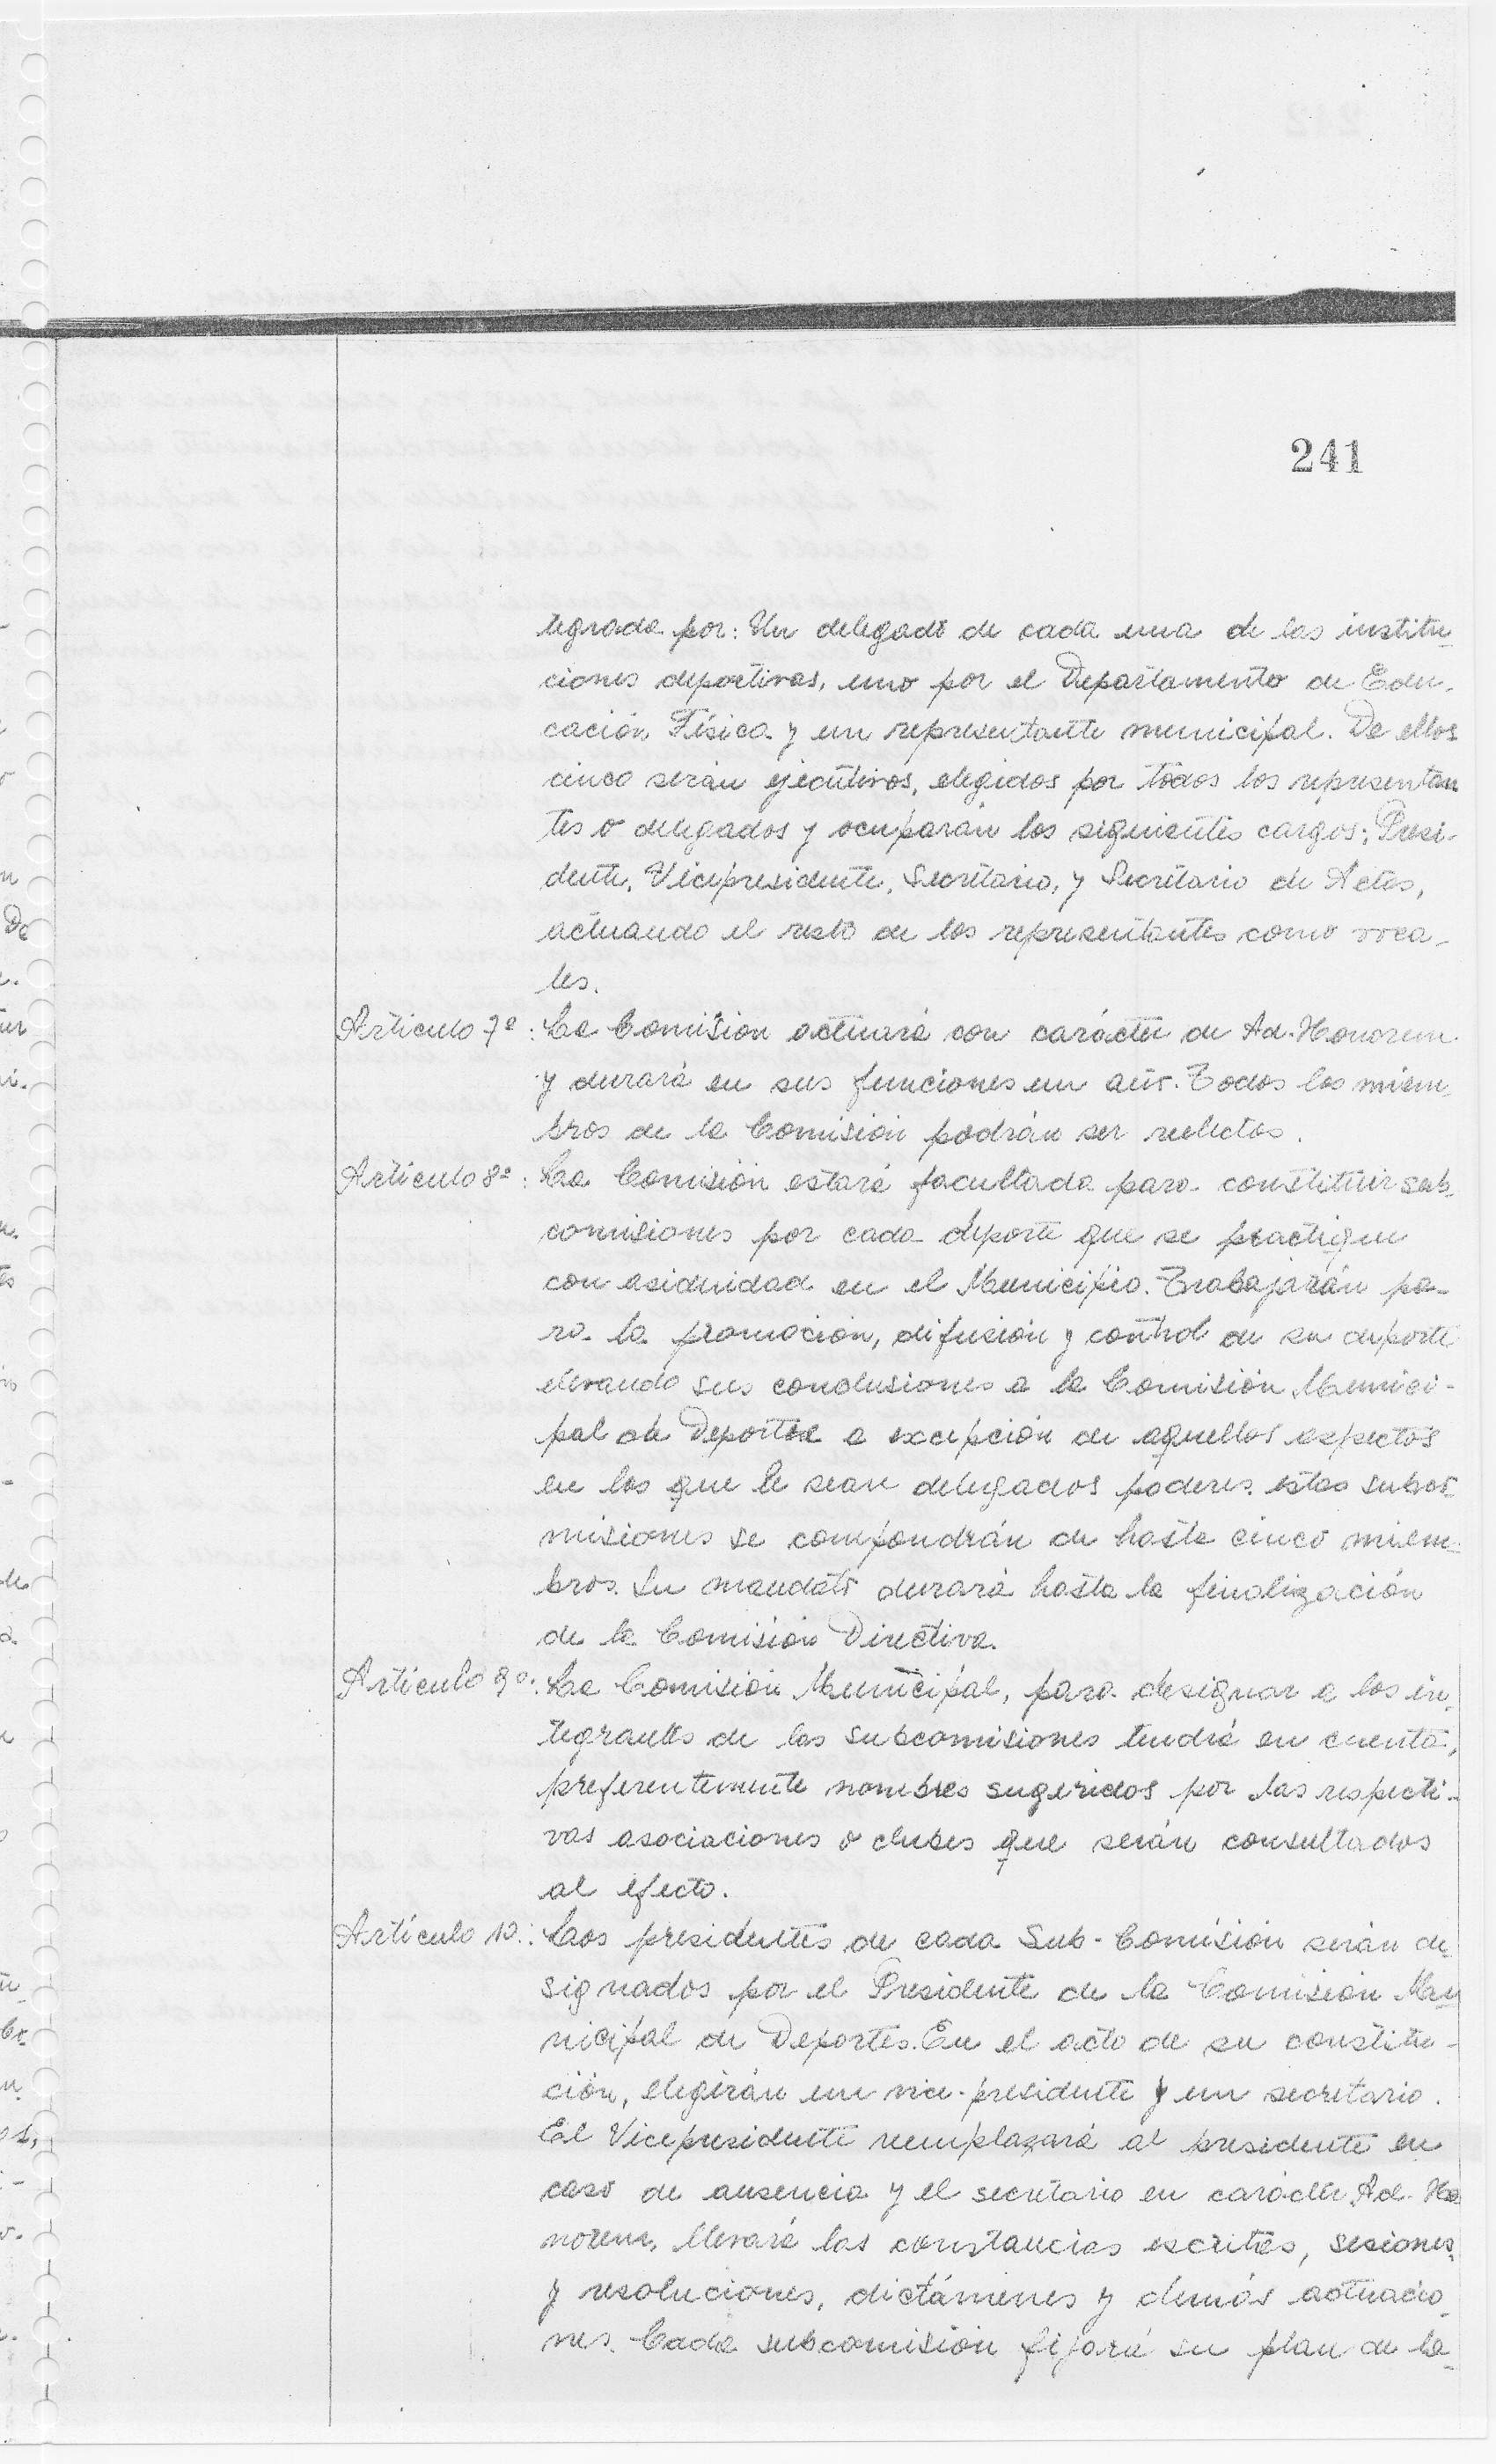 241
tegrada por: Un delegado de cada una de las institu-
ciones deportivas, uno por el Departamento de Edu-
cación Física y un representante municipal. De ellos
cinco serán ejecutivos, elegidos por todos los representan
tes o delegados y ocuparán los siguientes cargos: Presi-
dente, Vicepresidente, Secretario, y Secretario de Actas,
actuando el resto de los representantes como voca-
les.
Artículo 7º: La Comisión actuará con carácter de Ad-Honorem
y durará en sus funciones un año. Todos los miem-
bros de la Comisión podrán ser reelectos.
Artículo 8º: La Comisión estará facultada para constituir sub-
comisiones por cada deporte que se practique
con asiduidad en el Municipio. Trabajarán pa-
ra la promoción, difusión y control de su deporte
elevando sus conclusiones a la Comisión Munici-
pal de Deportes a excepción de aquellos aspectos
en los que le sean delegados poderes. estas subco-
misiones se compondrán de hasta cinco miem-
bros. Su mandato durará hasta la finalización
de la Comisión Directiva.
Artículo 9º: La Comisión Municipal, para designar a los in-
tegrantes de las subcomisiones tendrá en cuenta,
preferentemente nombres sugeridos por las respecti-
vas asociaciones o clubes que serán consultados
al efecto.
Artículo 10: Los presidentes de cada Sub-Comisión serán de-
signados por el Presidente de la Comisión Mu-
nicipal de Deportes. En el acto de su constitu-
ción, elegirán un vice-presidente y un secretario.
El Vicepresidente reemplazará al presidente en
caso de ausencia y el secretario en carácter Ad-Ho
norem, llevará las constancias escritas, sesiones,
y resoluciones, dictámenes y demás actuacio-
nes. Cada subcomisión fijará su plan de la-